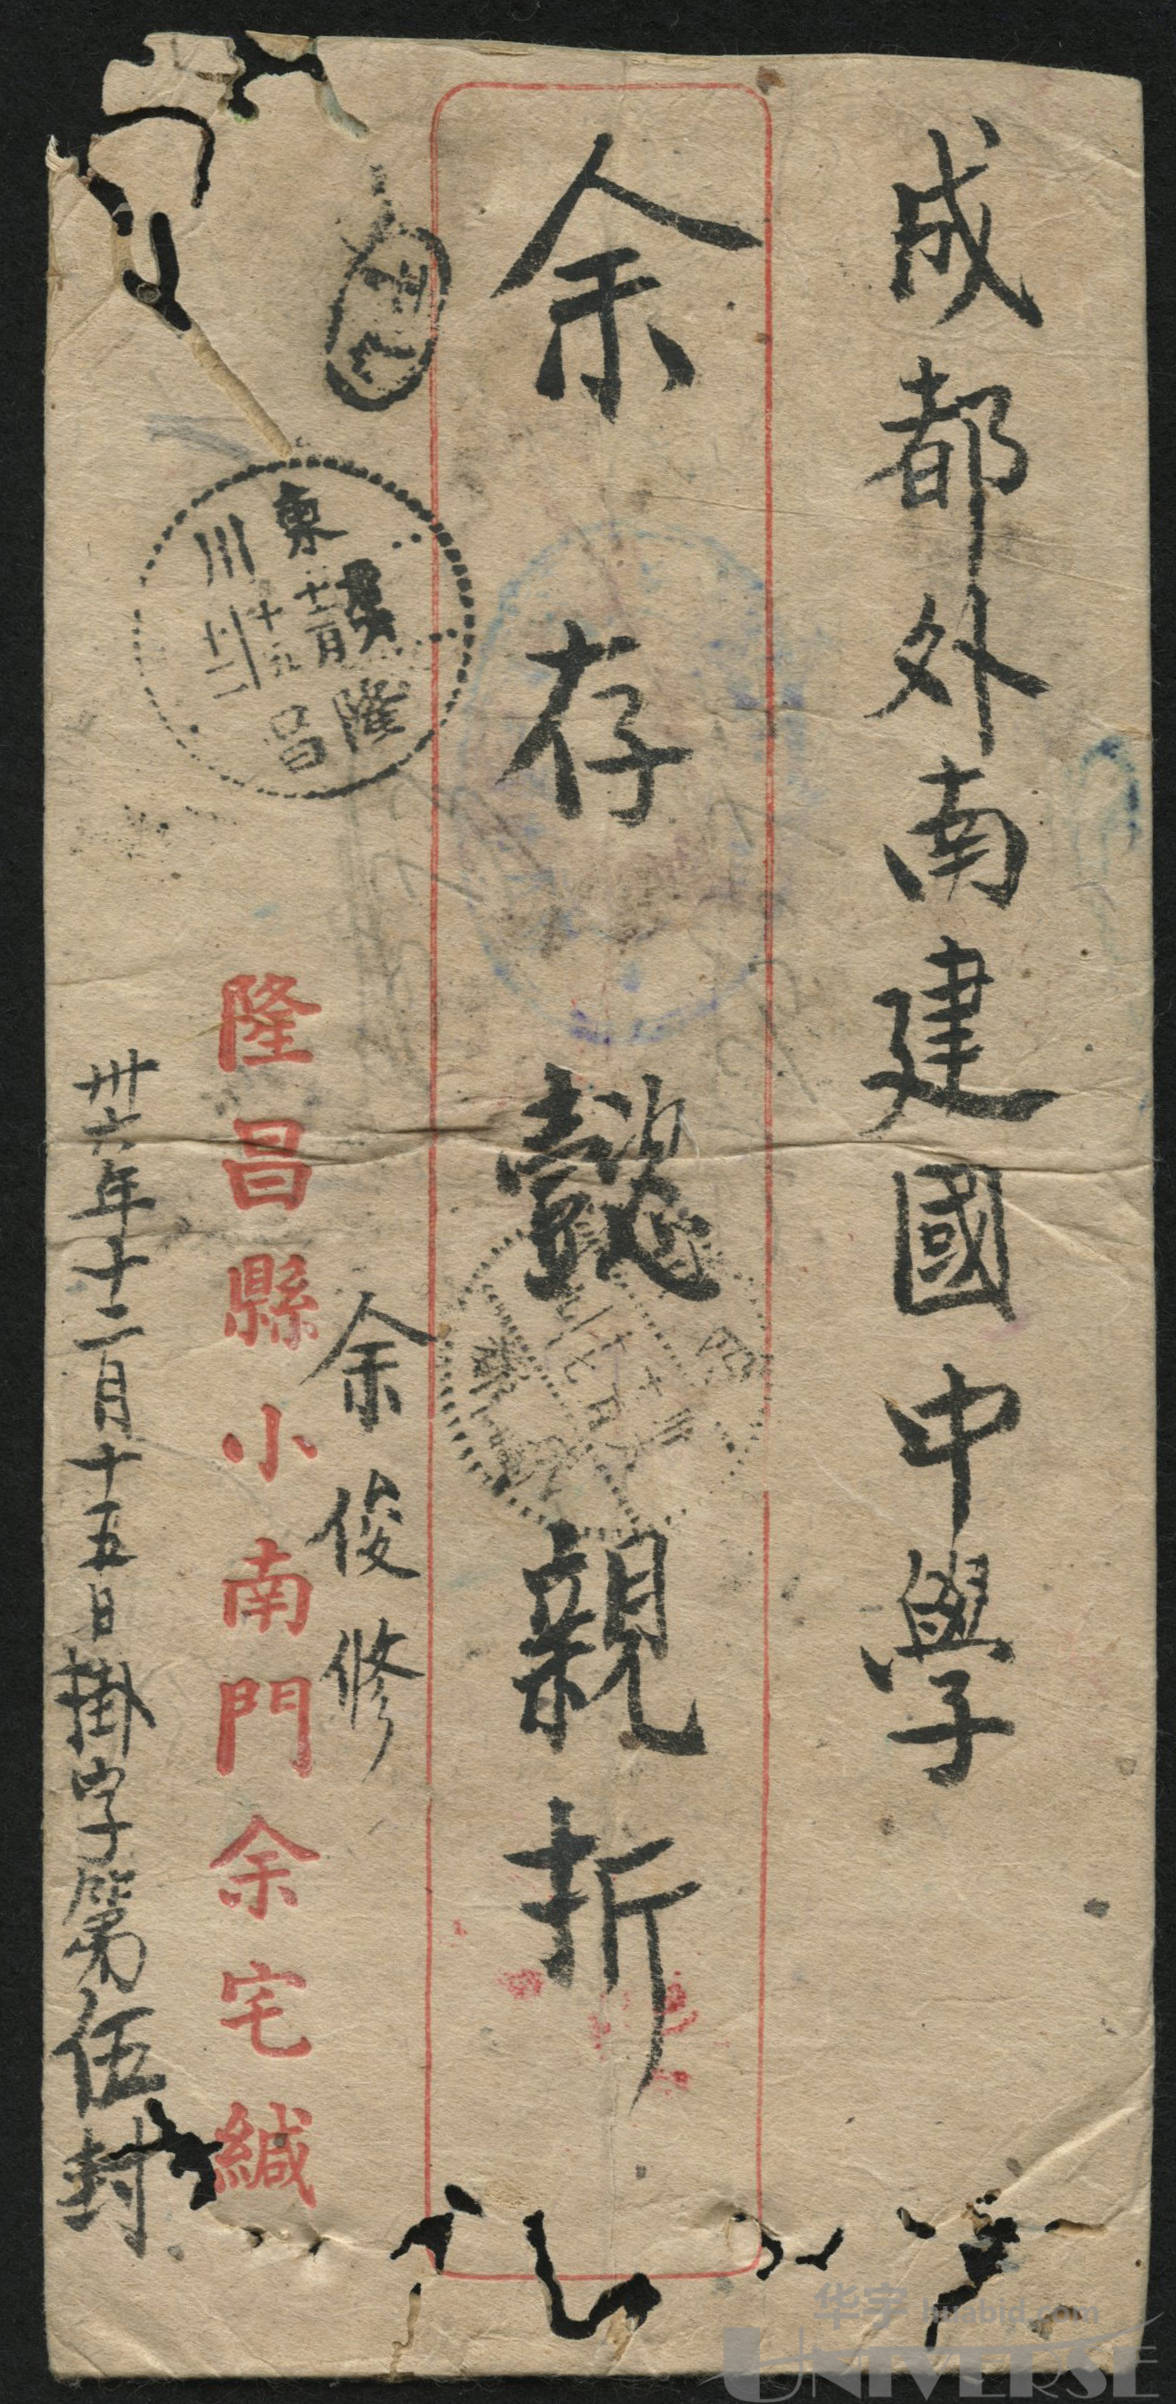 成都外南建國中學
余存懿親折
余俊修
隆昌縣小南門余宅緘
卅六年十二月十五日掛字第伍封
東川
隆昌
华宇 huabid.com
UNIVERSE